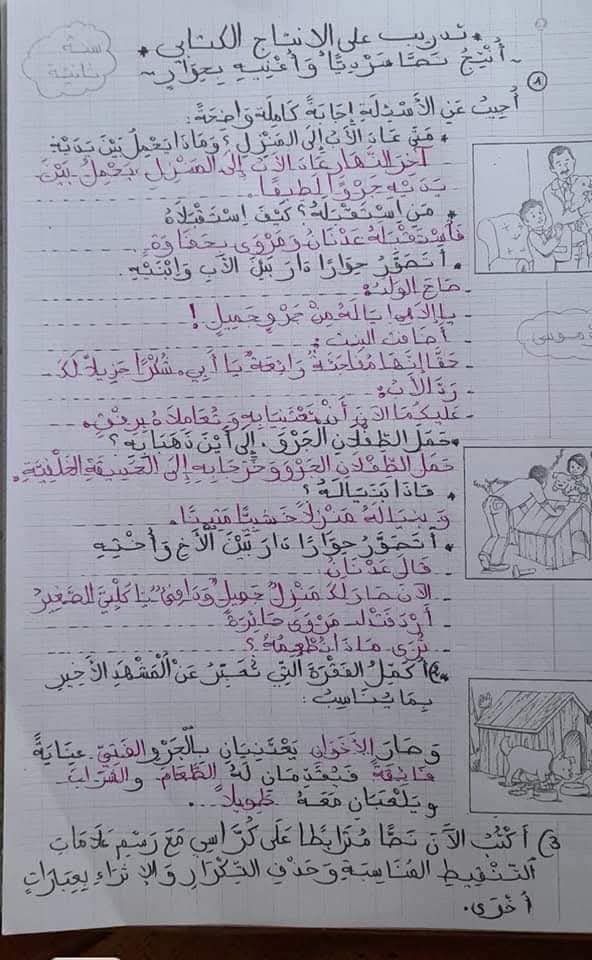 سنة
ثانية
* تدريب على الإنتاج الكتابي *
~ أُنْتِجُ نَصًّا سَرْدِيًّا وَأُغْنِيهِ بِحِوَارٍ ~
1
أُجِيبُ عَنِ الْأَسْئِلَةِ إِجَابَةً كَامِلَةً وَاضِحَةً:
* مَتَى عَادَ الْأَبُ إِلَى الْمَنْزِلِ؟ وَمَاذَا يَحْمِلُ بَيْنَ يَدَيْهِ
آخِرَ النَّهَارِ عَادَ الْأَبُ إِلَى الْمَنْزِلِ يَحْمِلُ بَيْنَ
يَدَيْهِ جَرْوًا لَطِيفًا.
* مَنِ اسْتَقْبَلَهُ؟ كَيْفَ اسْتَقْبَلَاهُ
فَاسْتَقْبَلَهُ عَدْنَانُ وَمَرْوَى بِحَفَاوَةٍ.
* أَتَصَوَّرُ حِوَارًا دَارَ بَيْنَ الْأَبِ وَابْنَيْهِ.
صَاحَ الْوَلَدُ:
- يَا إِلَاهِي! يَا لَهُ مِنْ جَرْوٍ جَمِيلٍ!
أَضَافَتِ الْبِنْتُ:
- حَقًّا إِنَّهَا مُفَاجَأَةٌ رَائِعَةٌ يَا أَبِي. شُكْرًا جَزِيلًا لَكَ
رَدَّ الْأَبُ:
- عَلَيْكُمَا الْآنَ أَنْ تَعْتَنِيَا بِهِ وَتُعَامِلَاهُ بِرِفْقٍ.
* حَمَلَ الطِّفْلَانِ الْجَرْوَ. إِلَى أَيْنَ ذَهَبَا بِهِ؟
حَمَلَ الطِّفْلَانِ الْجَرْوَ وَخَرَجَا بِهِ إِلَى الْحَدِيقَةِ الْخَلْفِيَّةِ.
* مَاذَا بَنَيَا لَهُ؟
وَبَنَيَا لَهُ مَنْزِلًا خَشَبِيًّا مَتِينًا.
* أَتَصَوَّرُ حِوَارًا دَارَ بَيْنَ الْأَخِ وَأُخْتِهِ
قَالَ عَدْنَانُ:
- الْآنَ صَارَ لَكَ مَنْزِلٌ جَمِيلٌ وَدَافِئٌ يَا كَلْبِيَ الصَّغِيرَ
أَرْدَفَتْ مَرْوَى حَائِرَةً
- تُرَى مَاذَا نُطْعِمُهُ؟
2) أُكْمِلُ الْفَقْرَةَ الَّتِي تُعَبِّرُ عَنْ الْمَشْهَدِ الْأَخِيرِ
بِمَا يُنَاسِبُ:
وَصَارَ الْأَخَوَانِ يَعْتَنِيَانِ بِالْجَرْوِ الْفَتِيِّ عِنَايَةً
فَائِقَةً فَيُقَدِّمَانِ لَهُ الطَّعَامَ وَالشَّرَابَ
وَيَلْعَبَانِ مَعَهُ طَوِيلًا.
3) أَكْتُبُ الْآنَ نَصًّا مُتَرَابِطًا عَلَى كُرَّاسِي مَعَ رَسْمِ عَلَامَاتِ
التَّنْقِيطِ الْمُنَاسِبَةِ وَحَذْفِ التِّكْرَارِ وَالْإِثْرَاءِ بِعِبَارَاتٍ
أُخْرَى.